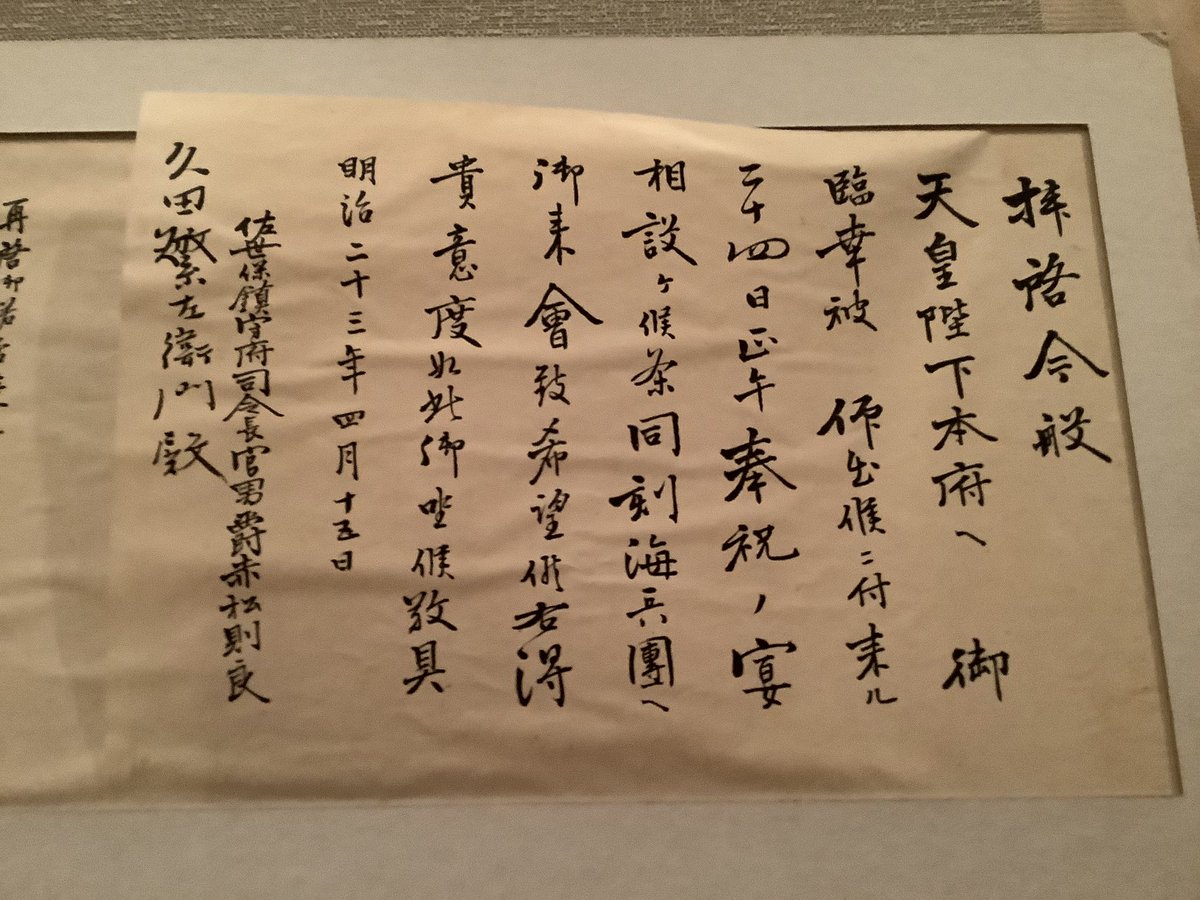 拝啓今般
天皇陛下本府へ　御
臨幸被　仰出候ニ付来ル
二十四日正午奉祝ノ宴
相設ケ候条同刻海兵團へ
御来會致希望候右得
貴意度如此御坐候敬具
明治二十三年四月十五日
佐世保鎮守府司令長官男爵赤松則良
久田繁左衛門殿
再啓御